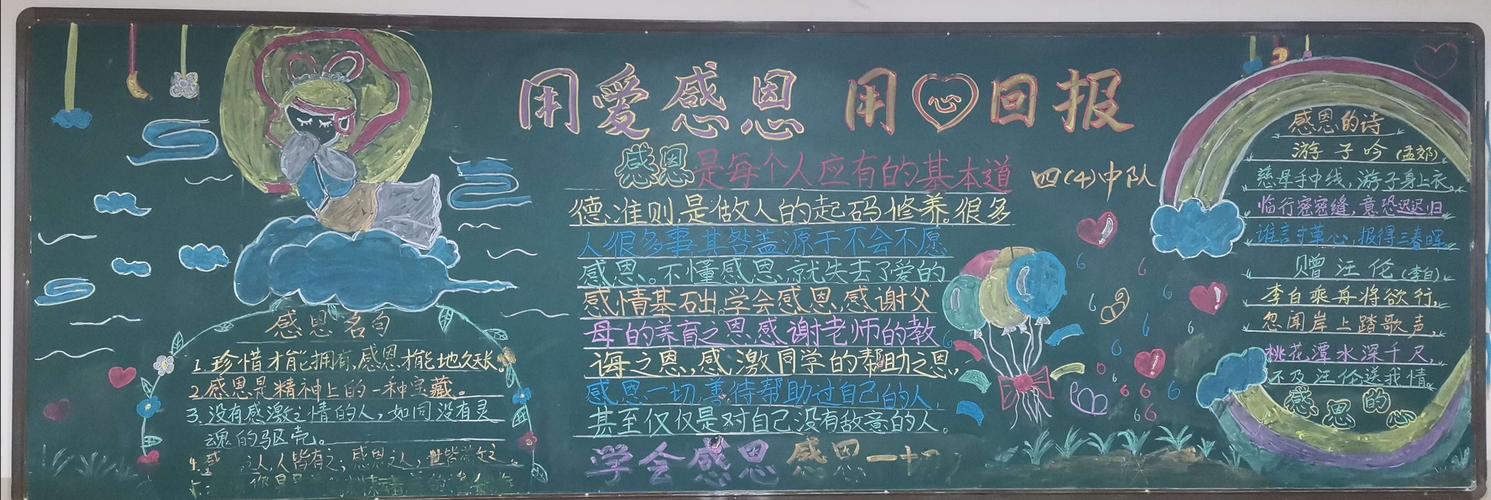 用爱感恩 用心回报
感恩是每个人应有的基本道
四(4)中队
德、准则是做人的起码修养。很多
人很多事其咎盖源于不会不愿
感恩。不懂感恩,就失去了爱的
感情基础。学会感恩,感谢父
母的养育之恩,感谢老师的教
诲之恩,感激同学的帮助之恩,
感恩一切善待帮助过自己的人,
甚至仅仅是对自己没有敌意的人。
学会感恩 感恩一
感恩名句
1.珍惜才能拥有,感恩才能地久天长。
2.感恩是精神上的一种宝藏。
3.没有感激之情的人,如同没有灵
魂的躯壳。
4.感 之人,人皆有之,感恩之
感恩的诗
游子吟(孟郊)
慈母手中线,游子身上衣。
临行密密缝,意恐迟迟归
谁言寸草心,报得三春晖
赠汪伦(李白)
李白乘舟将欲行,
忽闻岸上踏歌声,
桃花潭水深千尺,
不及汪伦送我情
感恩的心